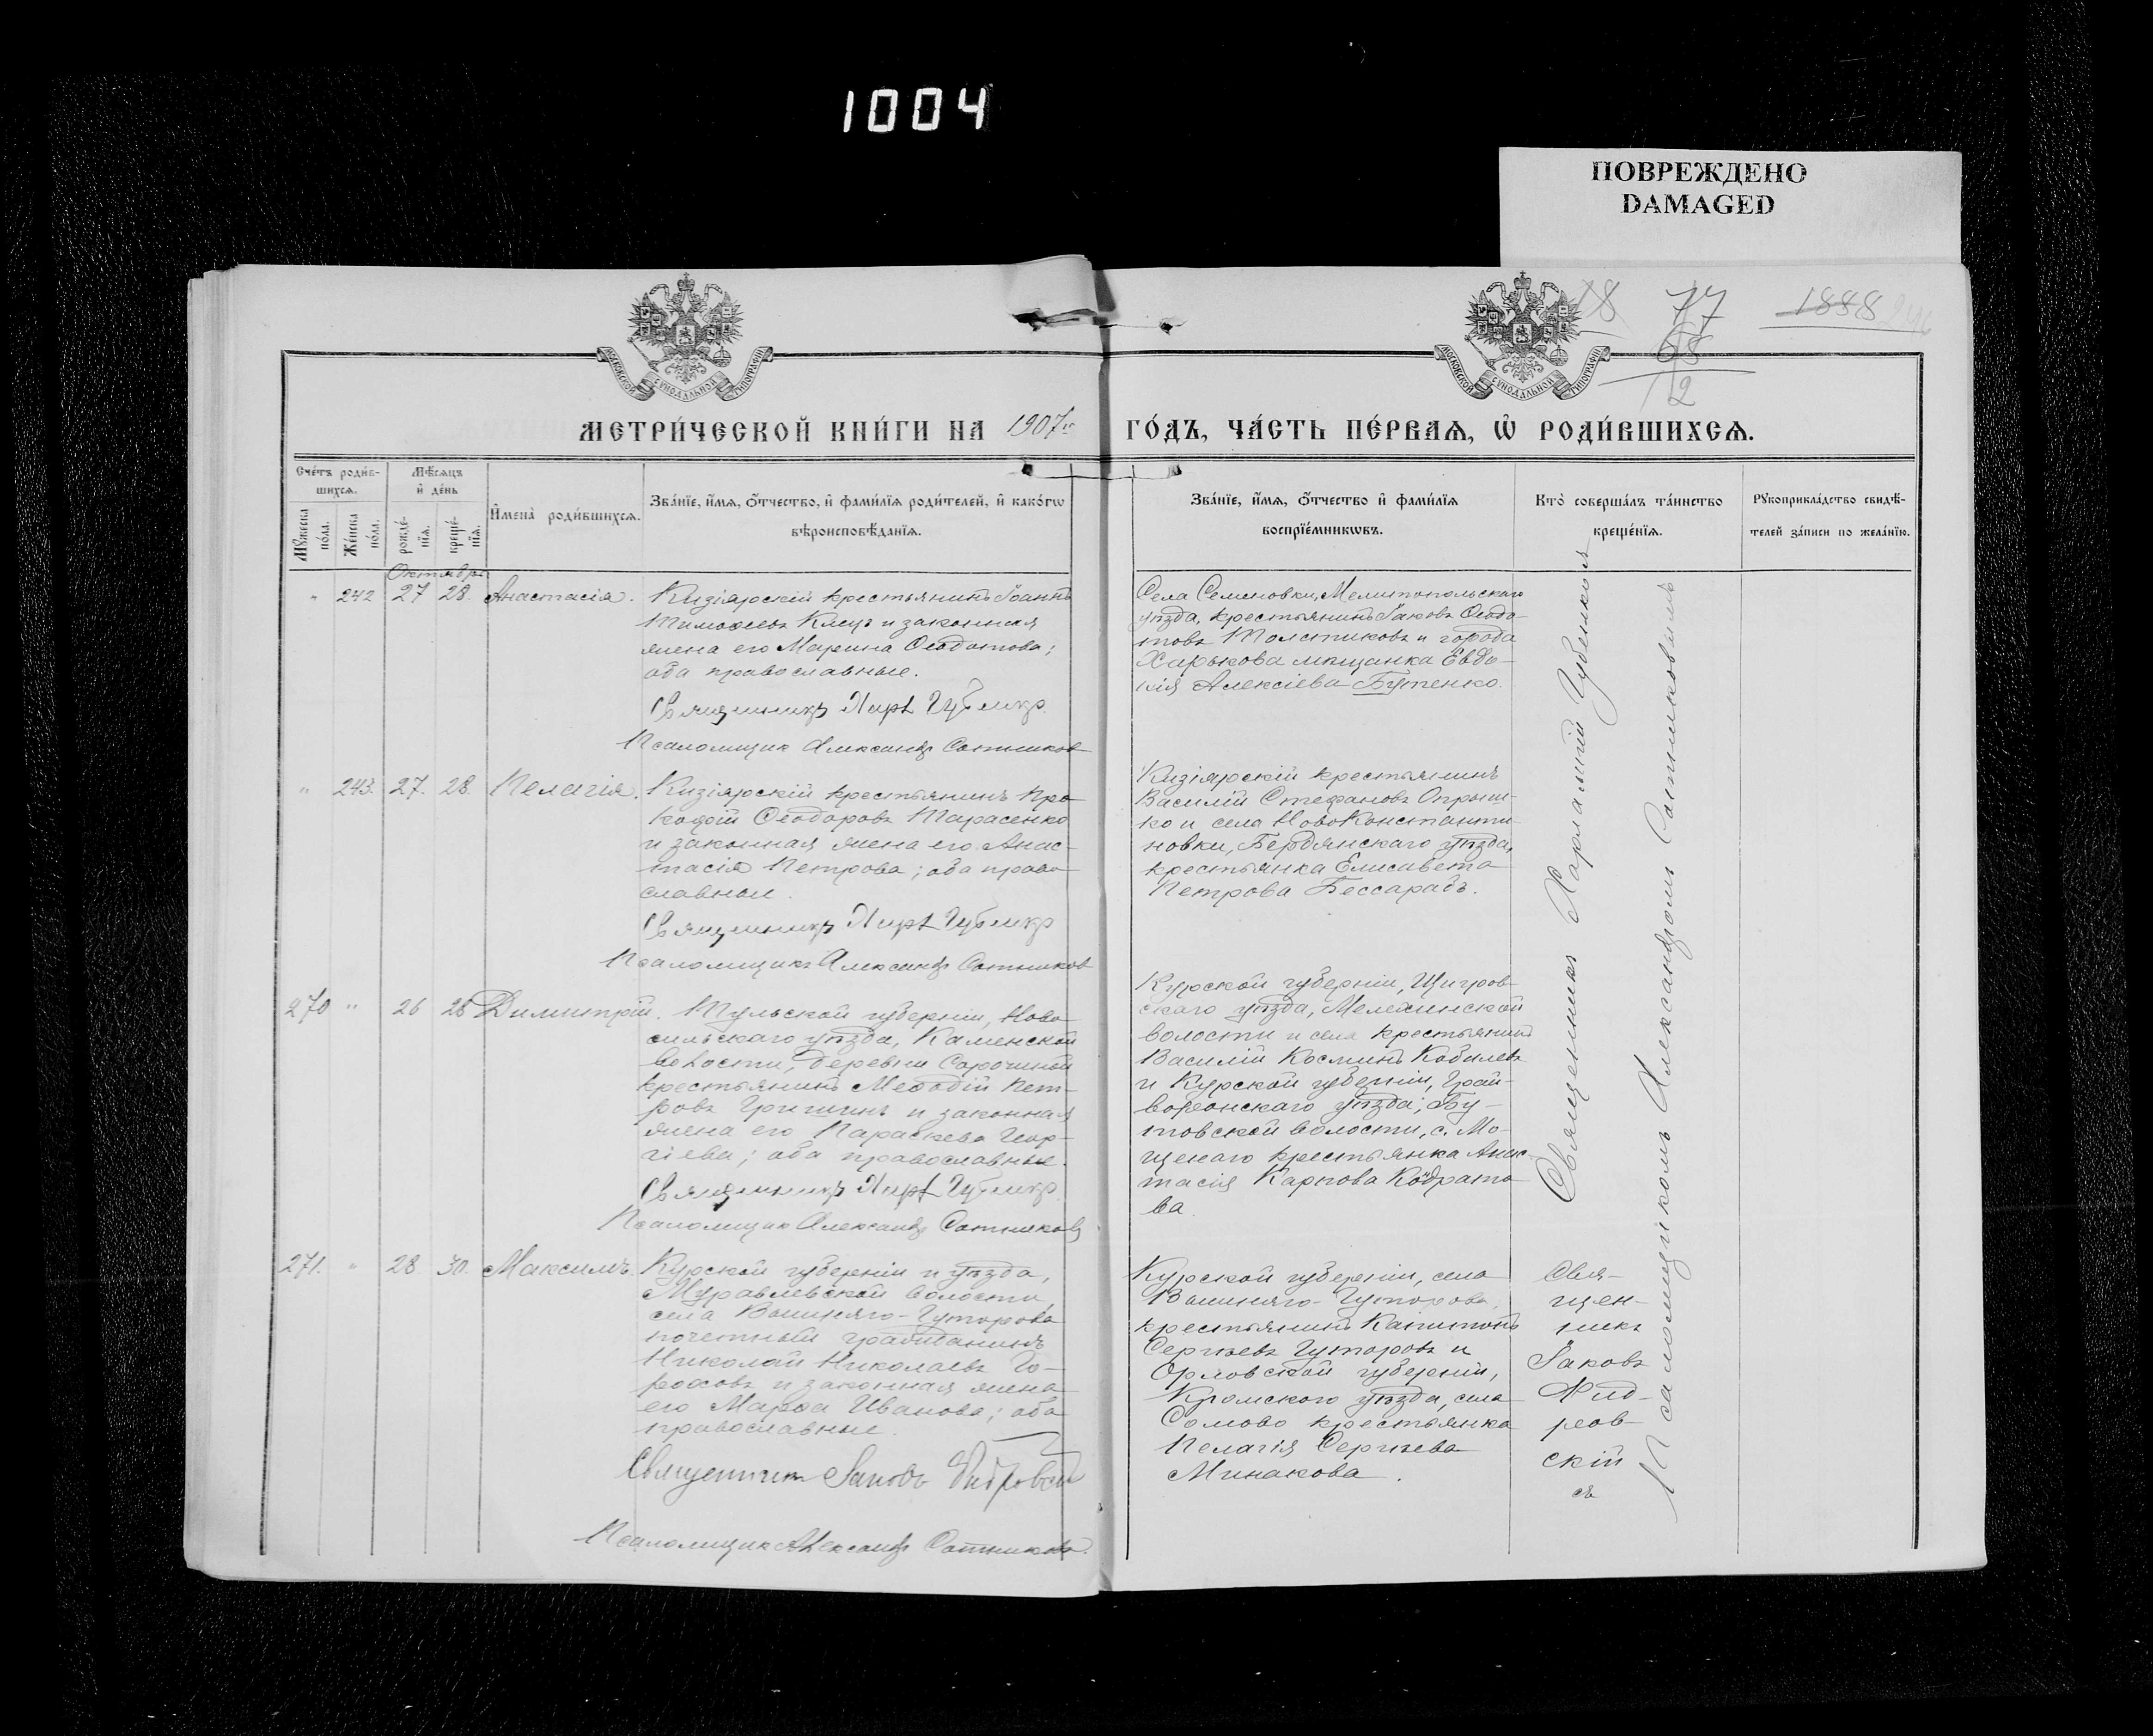 1004
ПОВРЕЖДЕНО
DAMAGED
18 77 1888
68
2
МОСКОВСКОЙ СѴНОДАЛЬНОЙ ТИПОГРАФІИ
МОСКОВСКОЙ СѴНОДАЛЬНОЙ ТИПОГРАФІИ
МЕТРИ́ЧЕСКОЙ КНИ́ГИ НА 1907й ГО́ДЪ, ЧА́СТЬ ПЕ́РВАѦ, Ѡ҆ РОДИ́ВШИХСѦ.
Сче́тъ роди́в-
шихсѧ.
Мꙋ́жеска
по́ла.
Же́нска
по́ла.
Мѣ́сѧцъ
и҆ де́нь
рожде́-
нїѧ.
креще́-
нїѧ.
И҆мена̀ роди́вшихсѧ.
Зва́нїе, и҆́мѧ, ѻ҆́тчество, и҆ фами́лїѧ роди́телей, и҆ како́гѡ
вѣроисповѣ́данїѧ.
Зва́нїе, и҆́мѧ, ѻ҆́тчество и҆ фами́лїѧ
воспрїе́мникѡвъ.
Кто̀ соверша́лъ та́инство
креще́нїѧ.
Рꙋкоприкла́дство свидѣ́-
телей за́писи по жела́нїю.
Октябрь
" 242 27 28. Анастасія.
Кизіярскій крестьянинъ Іоаннъ
Тимоѳеевъ Клецъ и законная
жена его Марина Ѳеодотова;
оба православные.
Священникъ Харл. Губенко.
Псаломщик Александр Сотников
Села Семеновки, Мелитопольскаго
уѣзда, крестьянинъ Іаковъ Ѳеодо-
товъ Толстиковъ и города
Харькова мѣщанка Евдо-
кія Алексіева Бутенко.
" 243. 27. 28. Пелагія.
Кизіярскій крестьянинъ Про
кофій Ѳеодоровъ Тарасенко
и законная жена его Анас-
тасія Петрова; оба право-
славные.
Священникъ Харл. Губенко
Псаломщикъ Александр Сотников
Кизіярскій крестьянинъ
Василій Стефановъ Опрыш-
ко и села НовоКонстанти-
новки, Бердянскаго уѣзда,
крестьянка Елисавета
Петрова Бессарабъ.
270 " 26 28 Димитрій.
Тульской губерніи, Ново-
сильскаго уѣзда, Каменской
волости, деревни Сорочиной
крестьянинъ Меѳодій Пет-
ровъ Гришинъ и законная
жена его Параскева Геор-
гіева; оба православные.
Священникъ Харл. Губенко.
Псаломщик Александр Сотников
Курской губерніи, Щигров-
скаго уѣзда, Мелехинской
волости и села крестьянинъ
Василій Космин Кобилевъ
и Курской губерніи, Грай-
воронскаго уѣзда, Бу-
товской волости, с. Мо-
щенаго крестьянка Анас-
тасія Карпова Кондрато-
ва.
271. " 28 30. Максимъ.
Курской губерніи и уѣзда,
Муравлевской волости,
села Вышняго-Гуторова
почетный гражданинъ
Николай Николаевъ Го-
роховъ и законная жена
его Марѳа Иванова; оба
православные.
Священникъ Іаковъ
Псаломщик Александр Сотниковъ.
Курской губерніи, села
Вышняго-Гуторова,
крестьянинъ Капитонъ
Сергѣевъ Гуторовъ и
Орловской губерніи,
Кромского уѣзда, села
Сомово крестьянка
Пелагія Сергѣева
Минакова.
Священникъ Харлампій Губенко съ
Свя-
щен-
никъ
Іаковъ
реов-
скій
съ
Псаломщикомъ Александромъ Сотниковымъ